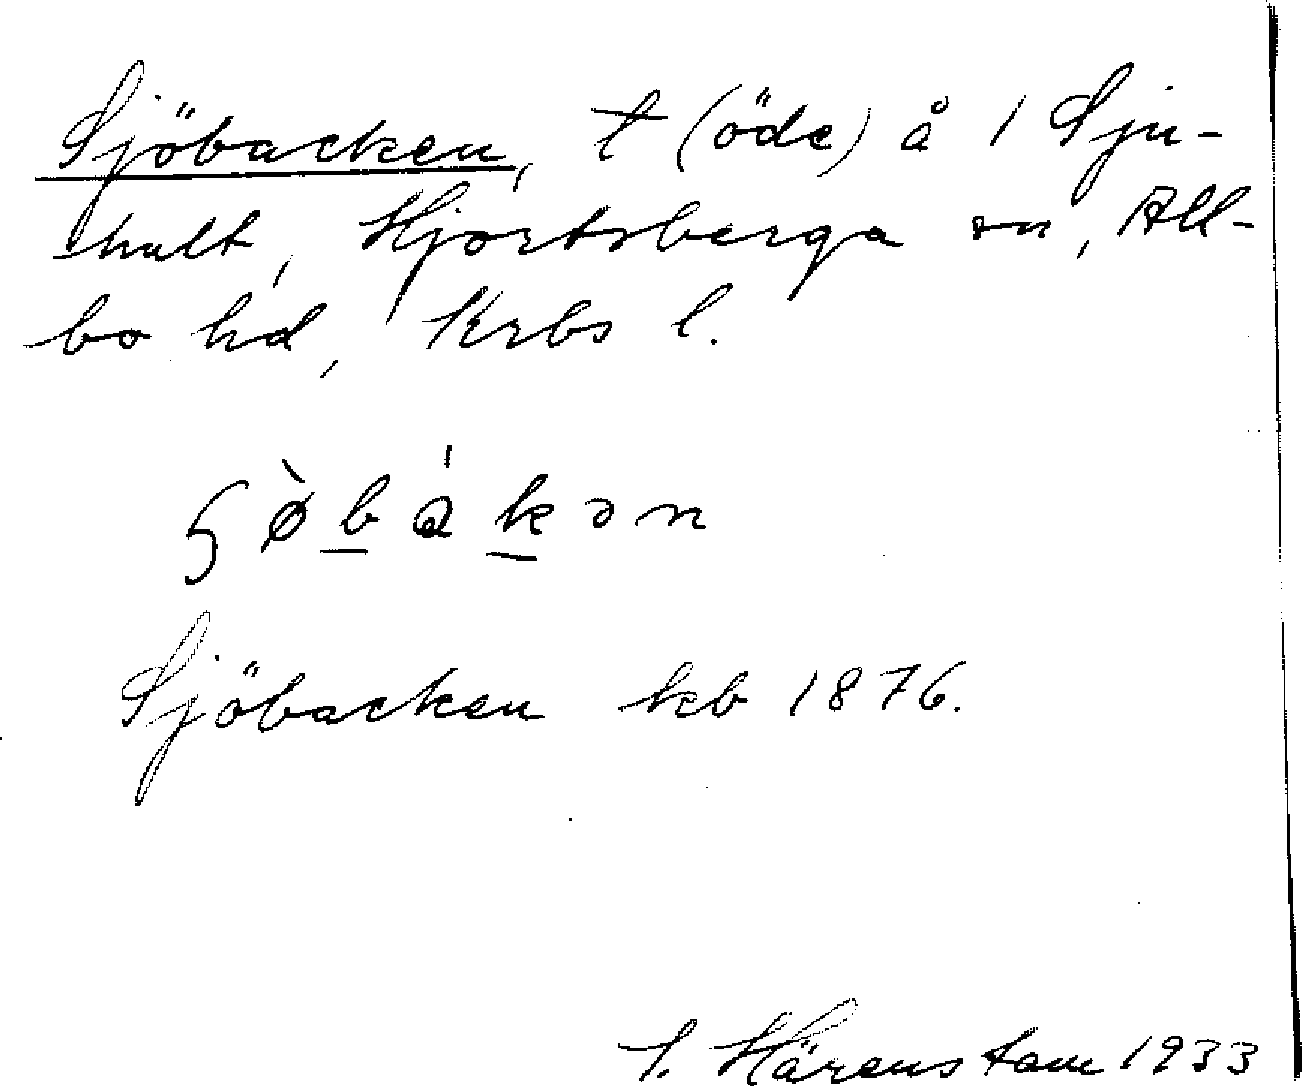 Sjöbacken, t (öde) å 1 Sju-
hult, Hjortsberga sn, All-
bo hd, Krbs l.
ʂø̀bákən
Sjöbacken kb 1876.
Härenstam 1933